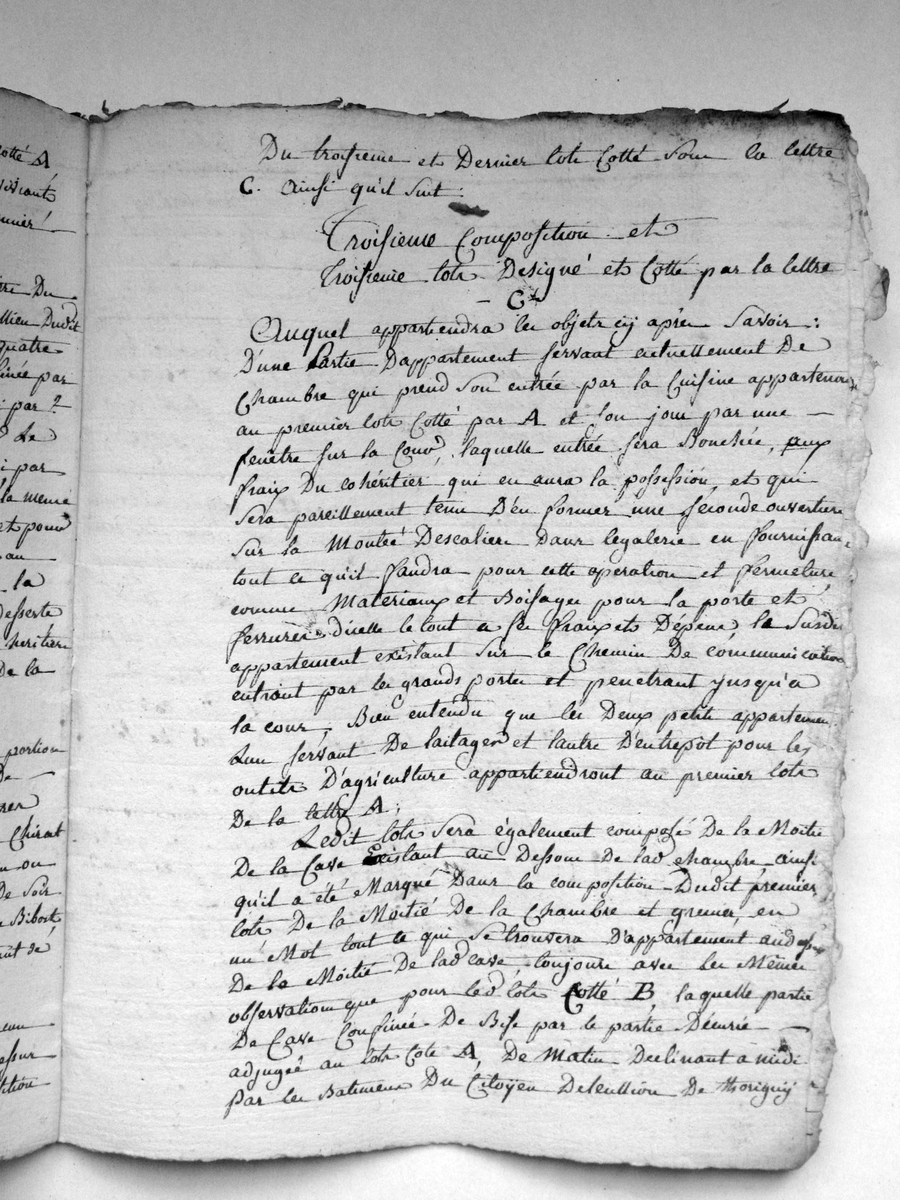 otté A
Du
quatre
par
par
la meme
et pour
au
la
De la
portion
De
Chirat
ou
De Soir
Bibost
Du troisieme et Dernier lots Cotté Sous la lettre
C. ainsi qu'il Suit :
Troisieme Composition et
Troisieme lots Designé et Cotté par la lettre
- C -
Auquel appartiendra les objets cy après Savoir :
D'une Partie D'appartement servant actuellement De
Chambre qui prend Son entrée par la Cuisine appartenant
au premier lots Cotté par A et son jour par une —
fenêtre sur la Cour, laquelle entrée sera Bouchée, aux
fraix Du cohéritier qui en aura la possession, et qui
Sera pareillement tenu D'en former une seconde ouverture
Sur la Montée Descalier Dans legalerie en fournissan
tout ce qu'il faudra pour cette operation et fermeture
comme Materiaux et Boisages pour la porte et
ferrures d'icelle le tout a ses fraix et Depens la Susdit
appartement existant Sur le Chemin De communication
entrant par les grands portes et penetrant jusqu'a
la cour, Bien entendu que les Deux petits appartemen
Lun servant De laitages et l'autre D'entrepôt pour les
outils D'agriculture appartiendront au premier lots
De la lettre A ;
Ledit lots Sera également composé De la Moitié
De la Cave Existant au Dessous De lad chambre ainsi
qu'il a été Marqué Dans la composition Dudit premier
lots De la Moitié De la Chambre et grenier, en
un Mot tout ce qui se trouvera D'appartement audessus
De la Moitié De lad cave, toujours avec les Mêmes
observations que pour led lots Cotté B laquelle partie
De Cave Confinée De Bise par le partie Décurie —
adjugée au lots Cote A, De Matin Declinant a midi
par les Batimens Du Citoyen De De thorigny